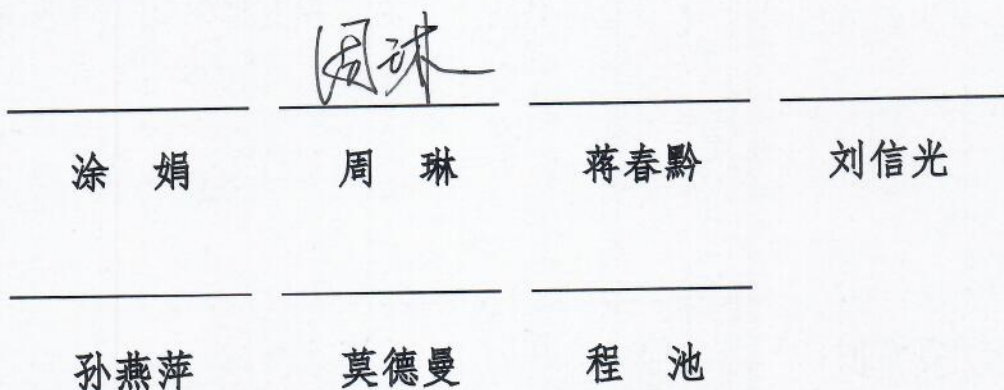 周琳
涂 娟 周 琳 蒋春黔 刘信光
孙燕萍 莫德曼 程 池